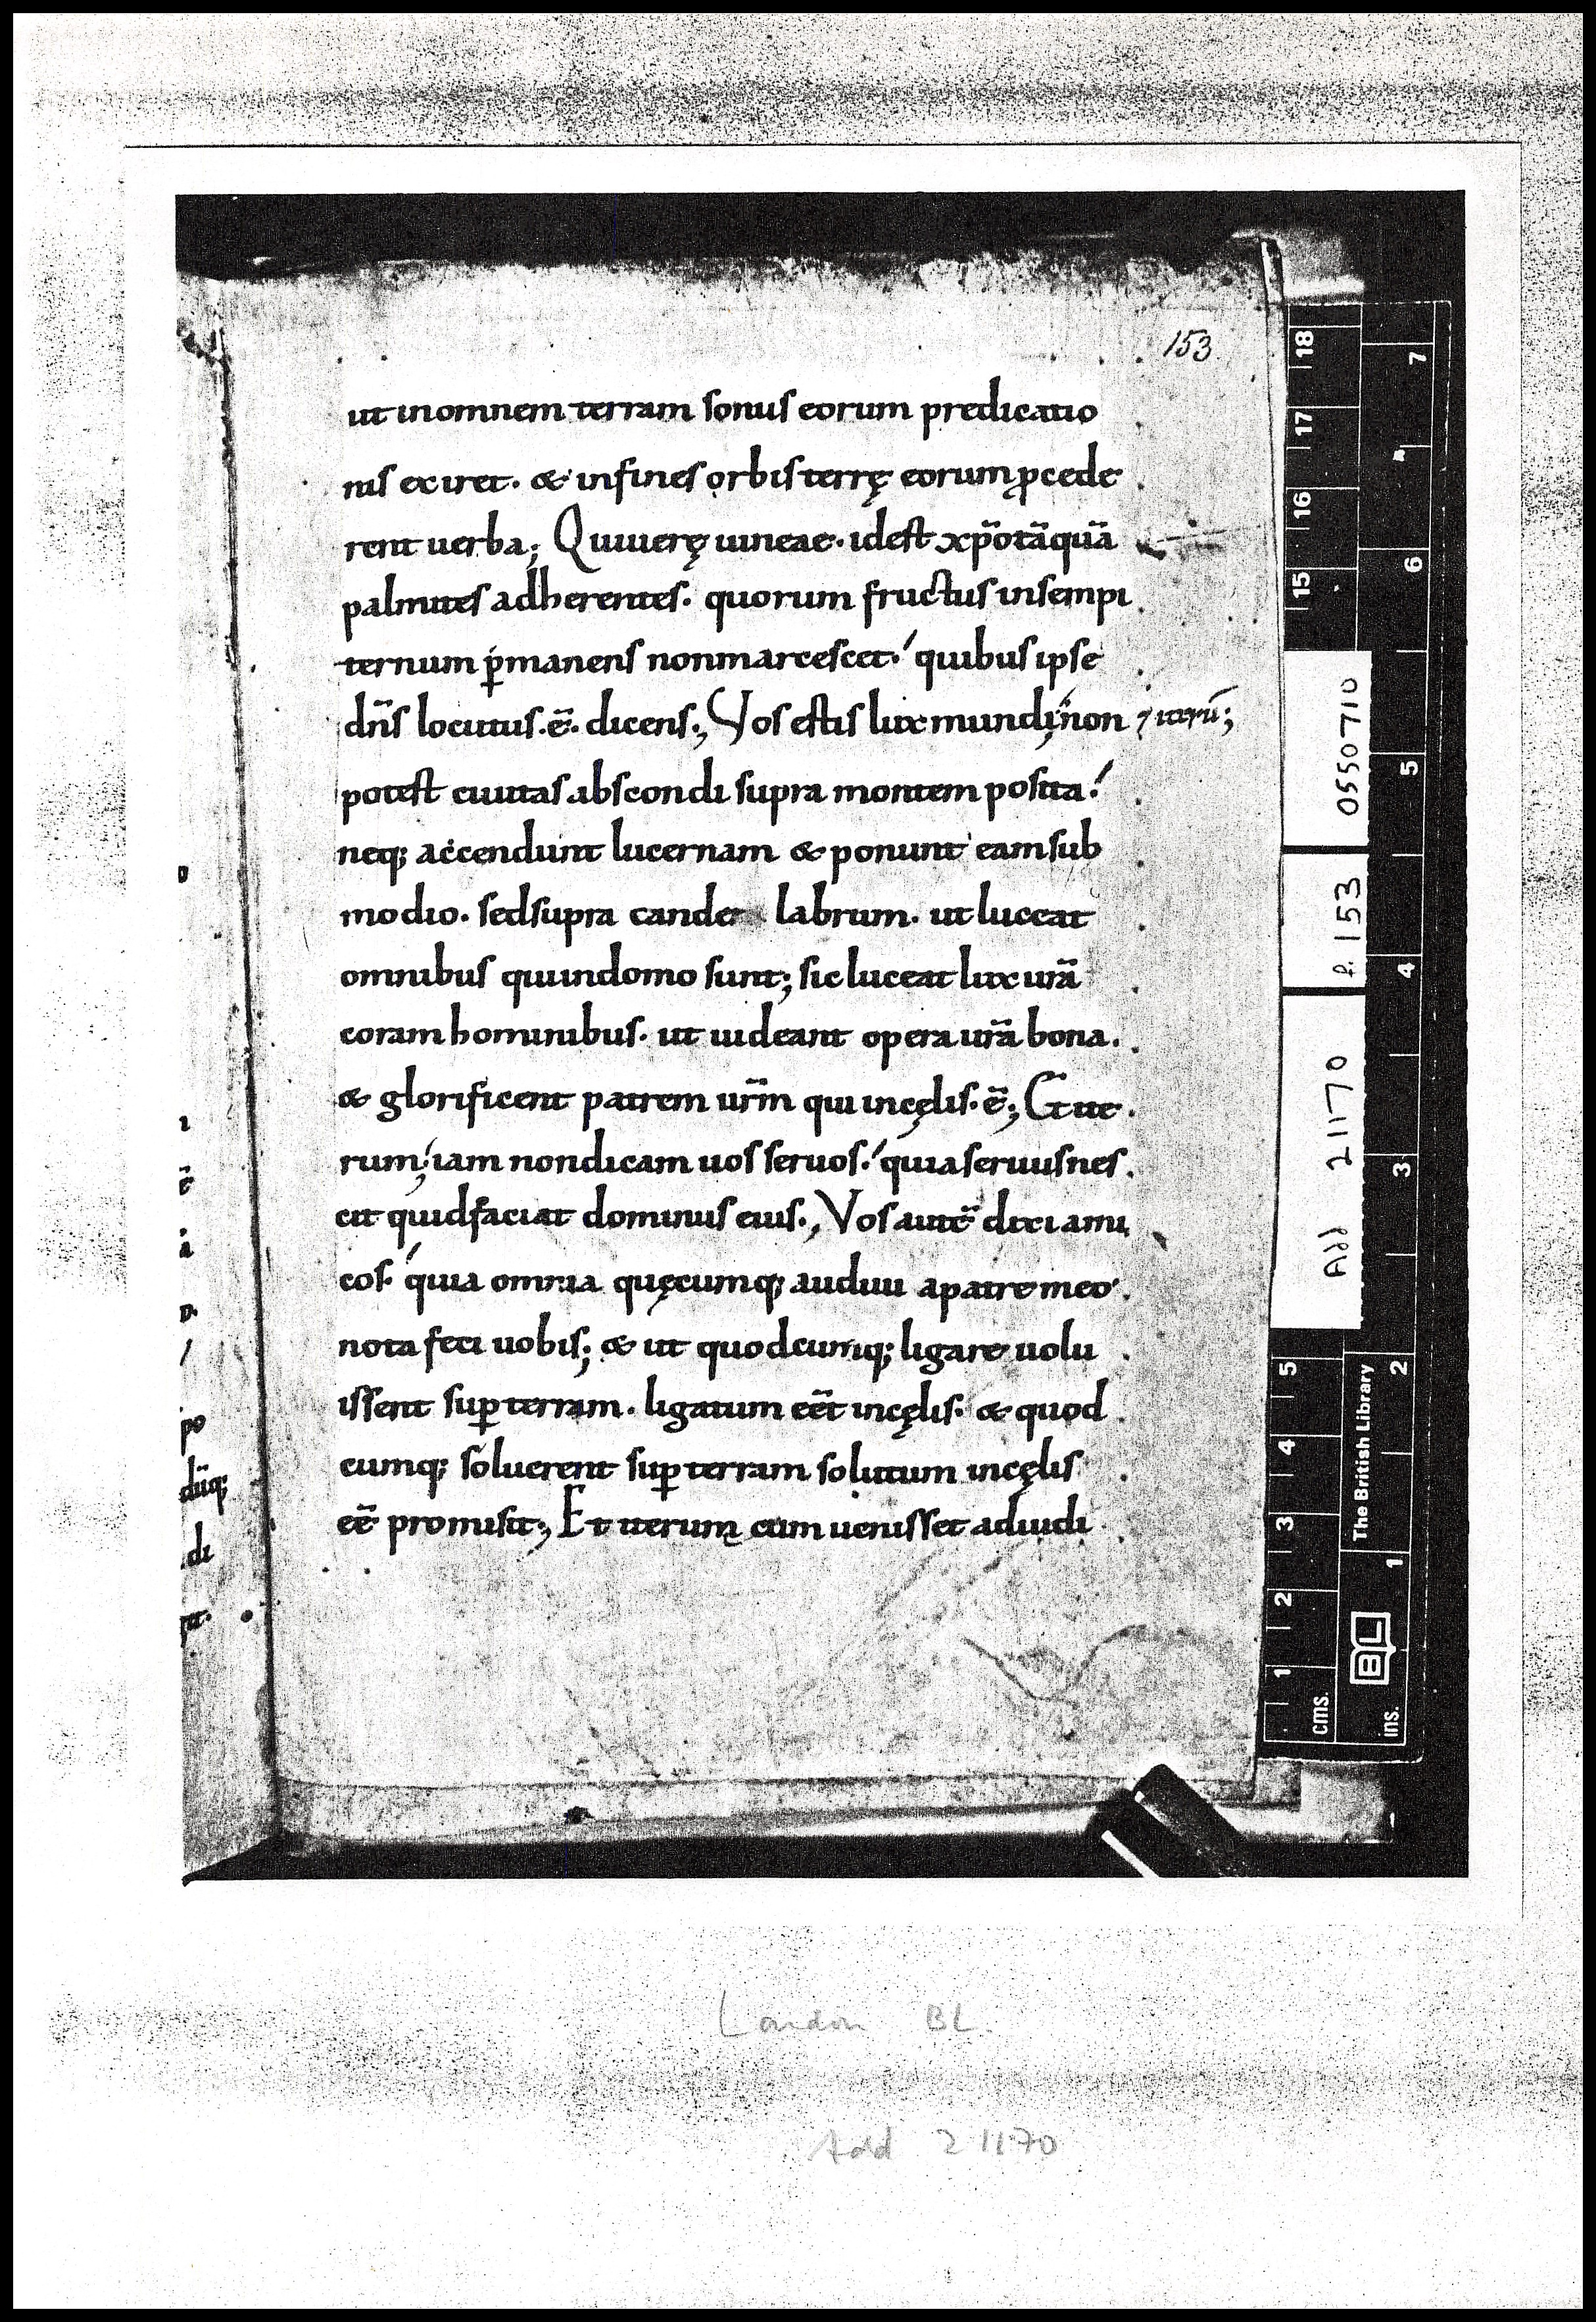 153
ut inomnem terram sonus eorum predicatio
nis exiret. & infines orbisterrę eorum ꝓcede
rent uerba; Quiuerę uineae. idest xp̄o tāquā
palmites adherentes. quorum fructus insempi
ternum ꝑmanens nonmarcescet. quibus ipse
dn̄s locutus.ē. dicens; Vos estis lux mundi; non ⁊ iterū;
potest ciuitas abscondi supra montem posita.
neq; accendunt lucernam & ponunt eamsub
modio. sedsupra cande labrum. ut luceat
omnibus quiindomo sunt; sic luceat lux urā
coram hominibus. ut uideant opera urā bona.
& glorificent patrem urm̄ qui incęlis.ē; Et ite
rum; iam nondicam uos seruos. quiaseruusnes
cit quidfaciat dominus eius; Vos autē dixi ami
cos. quia omnia quęcumq; audiui apatre meo.
nota feci uobis; & ut quodcumq; ligare uolu
issent suꝑ terram. ligatum eēt incęlis. & quod
cumq; soluerent suꝑ terram solutum incęlis
eē promisit; Et iterum cum uenisset adiudi
po
dūq;
di
18
17
16
15
7
6
5
4
3
2
1
0550710
f. 153
Add 21170
5
4
3
2
1
cms.
The British Library
BL
ins.
London BL
Add 21170